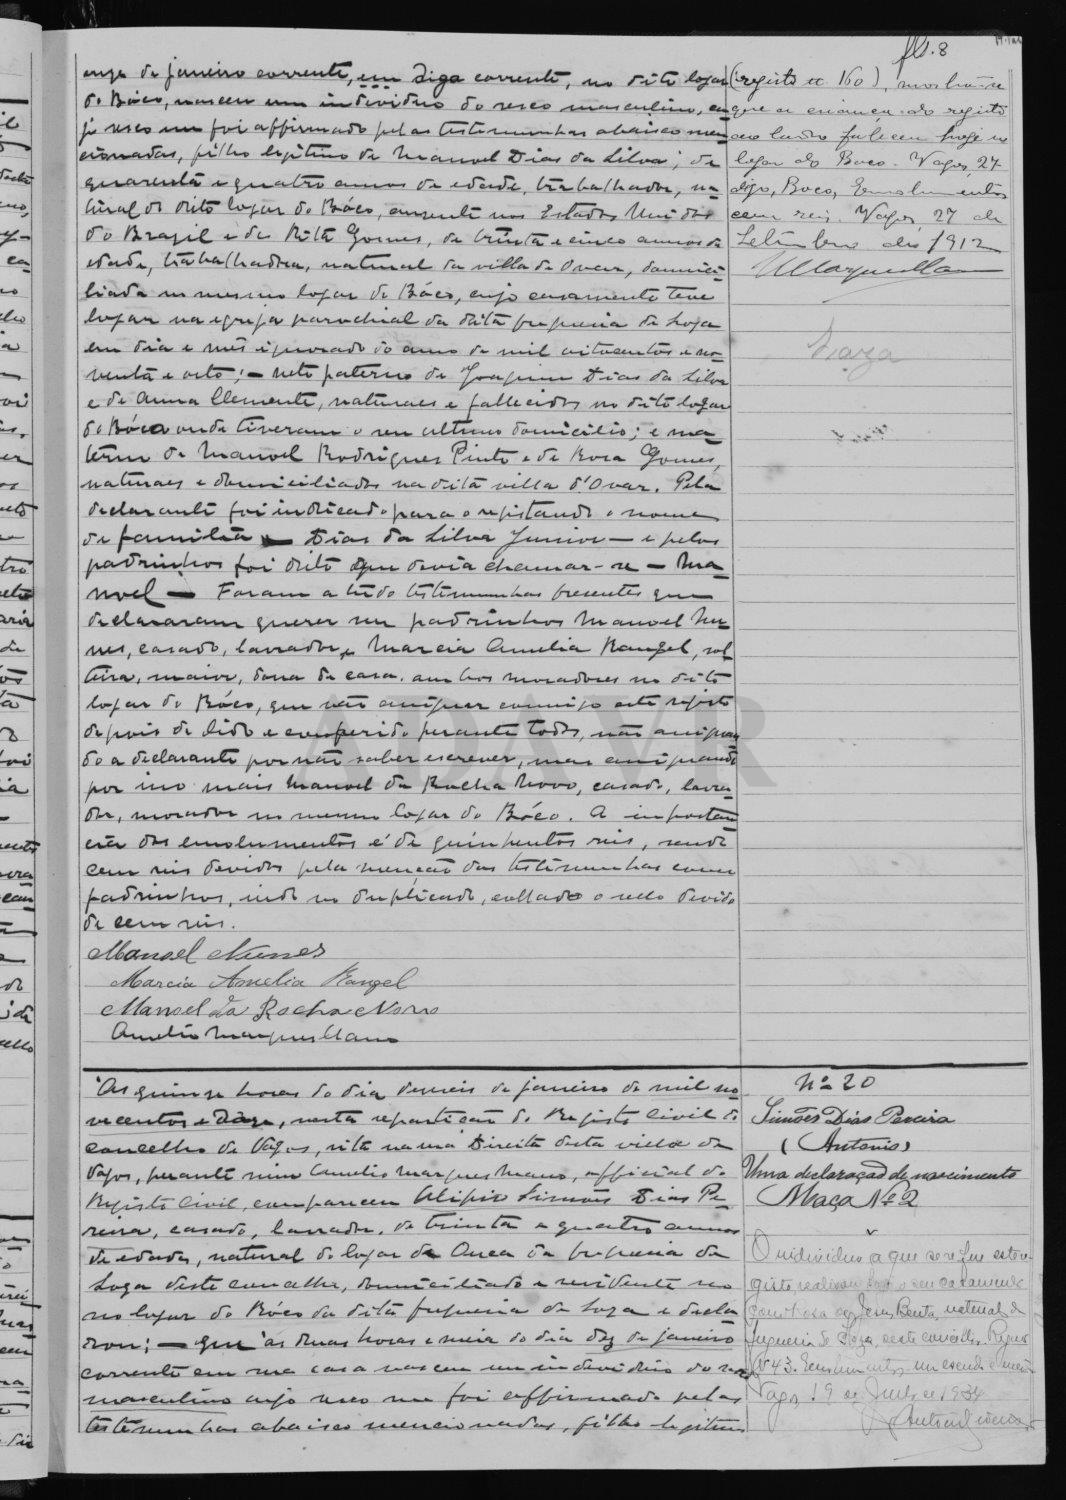 fls. 8
onze de janeiro corrente, em diga corrente, no dito logar
do Bóco, nasceu um individuo do sexo masculino, cu-
jo sexo me foi affirmado pelas testemunhas abaixo men-
cionadas, filho legitimo de Manoel Dias da Silva, de
quarenta e quatro annos de edade, trabalhador, na-
tural do dito logar do Bóco, ausente nos Estados Unidos
do Brazil e de Rita Gomes, de trinta e cinco annos de
edade, trabalhadora, natural da villa de Ovar, domici-
liada no mesmo logar do Bóco, cujo casamento teve
logar na egreja parochial da dita freguesia de Soza
em dia e mês ignorado do anno de mil oitocentos e no-
venta e oito; — neto paterno de Joaquim Dias da Silva
e de Anna Clemente, naturaes e fallecidos no dito logar
do Bóco onde tiveram o seu ultimo domicilio; e ma-
terno de Manoel Rodrigues Pinto e de Rosa Gomes,
naturaes e domiciliados na dita villa d'Ovar. Pela
declarante foi indicado para o registando o nome
de familia — Dias da Silva Junior — e pelos
padrinhos foi dito que devia chamar-se — Ma-
noel — Foram a tudo testemunhas presentes que
declararam querer ser padrinhos Manoel Nu-
nes, casado, lavrador, e Marcia Amelia Rangel, sol-
teira, maior, dona de casa, ambos moradores no dito
logar do Bóco, que vão assignar commigo este registo
depois de lido e conferido perante todos, não assignan-
do a declarante por não saber escrever, mas assignando
por isso mais Manoel da Rocha Novo, casado, lavra-
dor, morador no mesmo logar do Bóco. A importan-
cia dos emolumentos é de quinhentos reis, sendo
cem reis devidos pela menção das testemunhas como
padrinhos, indo no duplicado, collado o sello devido
de cem reis.
Manoel Nunes
Marcia Amelia Rangel
Manoel da Rocha Novo
Amelio Marques Mano
(registo nº 160), mostra-se
que a criança do registo
ao lado faleceu hoje no
logar do Boco. Vagos, 27
digo, Boco, Emolumentos
cem reis. Vagos, 27 de
Setembro de 1912
Soza
ADAVR
Às quinze horas do dia deseseis de janeiro de mil no-
vecentos e doze, nesta repartição do Registo Civil do
concelho de Vagos, sita na rua Direita desta villa de
Vagos, perante mim Amelio Marques Mano, official do
Registo Civil, compareceu Alipio Simões Dias Pe-
reira, casado, lavrador, de trinta e quatro annos
de edade, natural do logar de Ouca da freguesia de
Soza deste concelho, domiciliado e residente no
no logar do Bóco da dita freguesia de Soza e decla-
rou: — que ás duas horas e meia do dia dez de janeiro
corrente em sua casa nasceu um individuo do sexo
masculino cujo sexo me foi affirmado pelas
testemunhas abaixo mencionadas, filho legitimo
Nº 20
Simões Dias Pereira
(Antonio)
Uma declaração de nascimento
Maço Nº 2
O individuo a que se refere este re-
gisto, realisou hoje o seu casamento
com Rosa de Jesus Benta, natural da
freguesia de Soza, deste concelho. Registo
Nº 43. Emolumentos, um escudo e meio
Vagos, 19 de de 1934